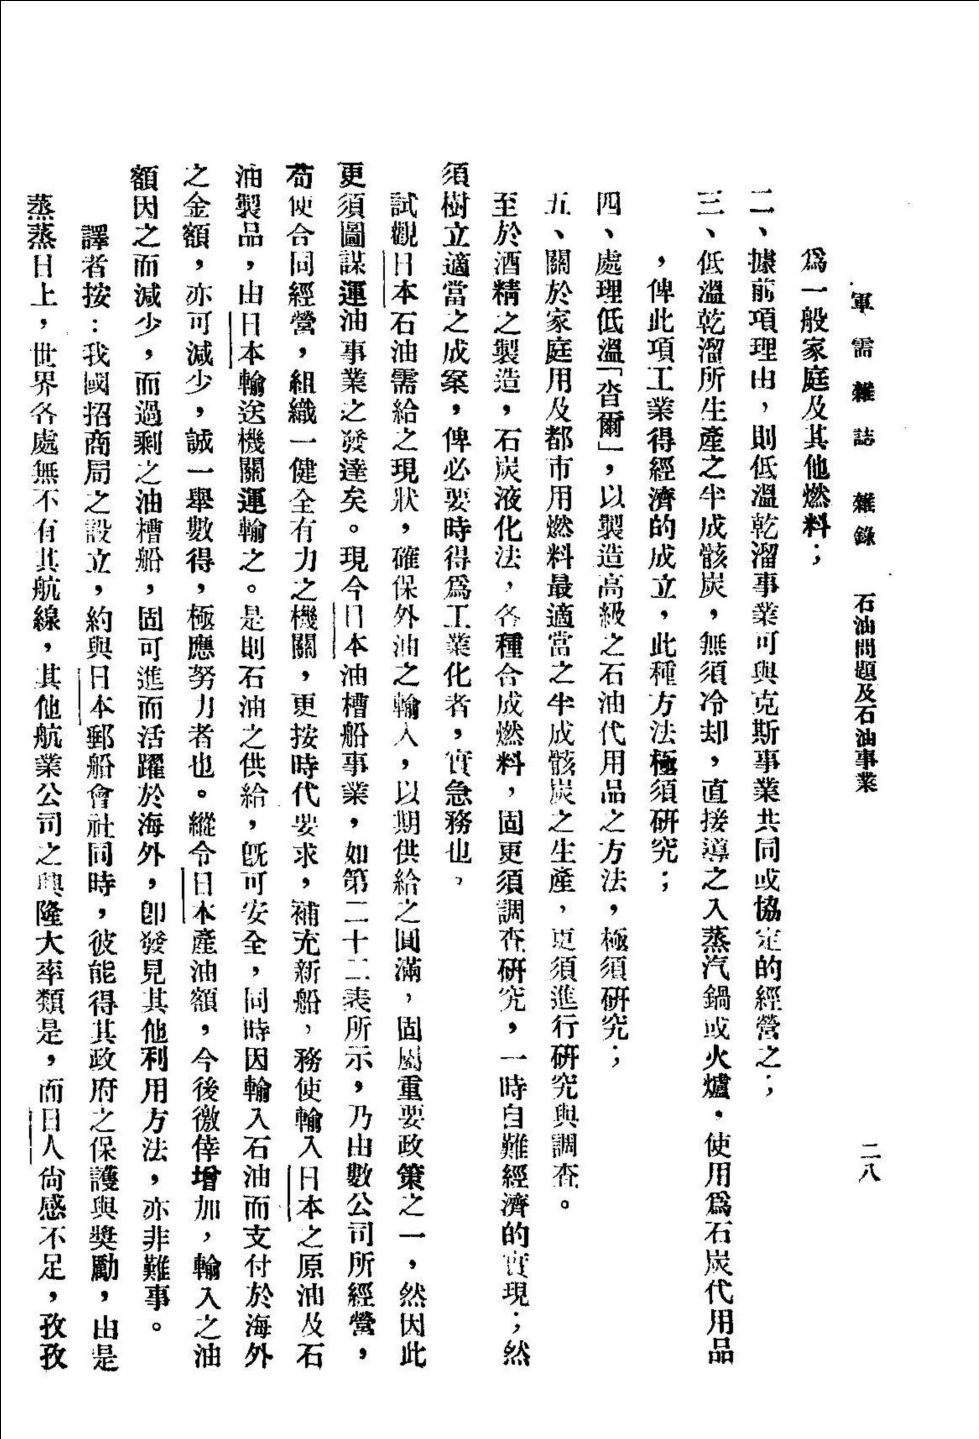 軍需雜誌　雜錄　石油問題及石油事業　二八
爲一般家庭及其他燃料；
二、據前項理由，則低溫乾溜事業可與克斯事業共同或協定的經營之；
三、低溫乾溜所生產之半成骸炭，無須冷却，直接導之入蒸汽鍋或火爐，使用爲石炭代用品
，俾此項工業得經濟的成立，此種方法極須研究；
四、處理低溫「沓爾」，以製造高級之石油代用品之方法，極須研究；
五、關於家庭用及都市用燃料最適當之半成骸炭之生產，更須進行研究與調查。
至於酒精之製造，石炭液化法，各種合成燃料，固更須調查研究，一時自難經濟的實現；然
須樹立適當之成案，俾必要時得爲工業化者，實急務也，
試觀日本石油需給之現狀，確保外油之輸入，以期供給之圓滿，固屬重要政策之一，然因此
更須圖謀運油事業之發達矣。現今日本油槽船事業，如第二十二表所示，乃由數公司所經營，
苟使合同經營，組織一健全有力之機關，更按時代要求，補充新船，務使輸入日本之原油及石
油製品，由日本輸送機關運輸之。是則石油之供給，旣可安全，同時因輸入石油而支付於海外
之金額，亦可減少，誠一舉數得，極應努力者也。縱令日本產油額，今後徼倖增加，輸入之油
額因之而減少，而過剩之油槽船，固可進而活躍於海外，卽發見其他利用方法，亦非難事。
譯者按：我國招商局之設立，約與日本郵船會社同時，彼能得其政府之保護與獎勵，由是
蒸蒸日上，世界各處無不有其航線，其他航業公司之興隆大率類是，而日人尙感不足，孜孜